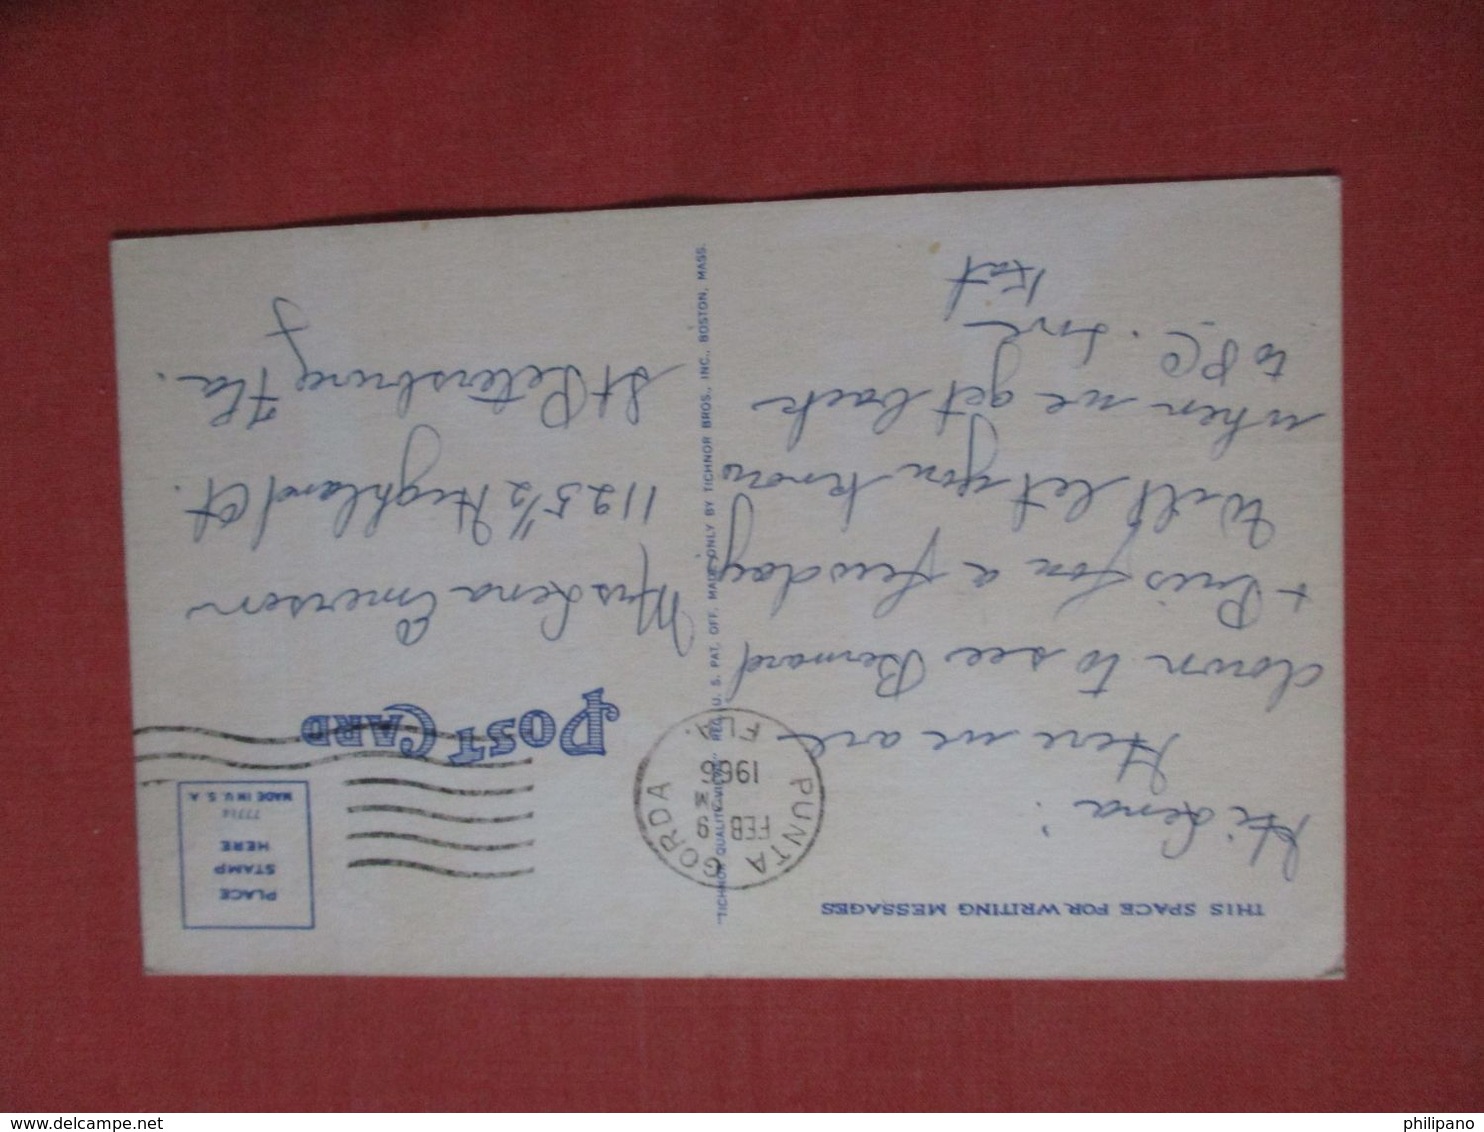 THIS SPACE FOR WRITING MESSAGES
Hi Lena:
Here we are
down to see Bernard
+ Pris for a few days
Will let you know
when we get back
to P.C. Love
Kat
PUNTA GORDA
FEB 9
1966
FLA.
"TICHNOR QUALITY VIEWS," REG. U. S. PAT. OFF. MADE ONLY BY TICHNOR BROS., INC., BOSTON, MASS.
POST CARD
PLACE
STAMP
HERE
77714
MADE IN U. S. A.
Mrs Lena Emerson
1125 1/2 Highland Ct.
St Petersburg Fla.
delcampe.net
philipano